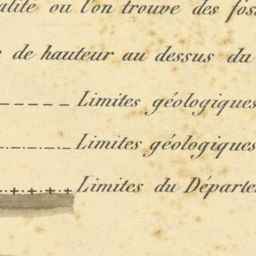 ou l'on trouve des
de hauteur au dessus du
Limites géologiques
Limites géologiques
Limites du